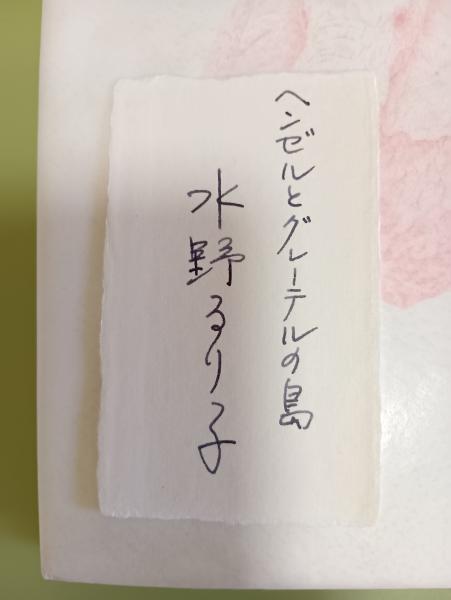 ヘンゼルとグレーテルの島
水野るり子